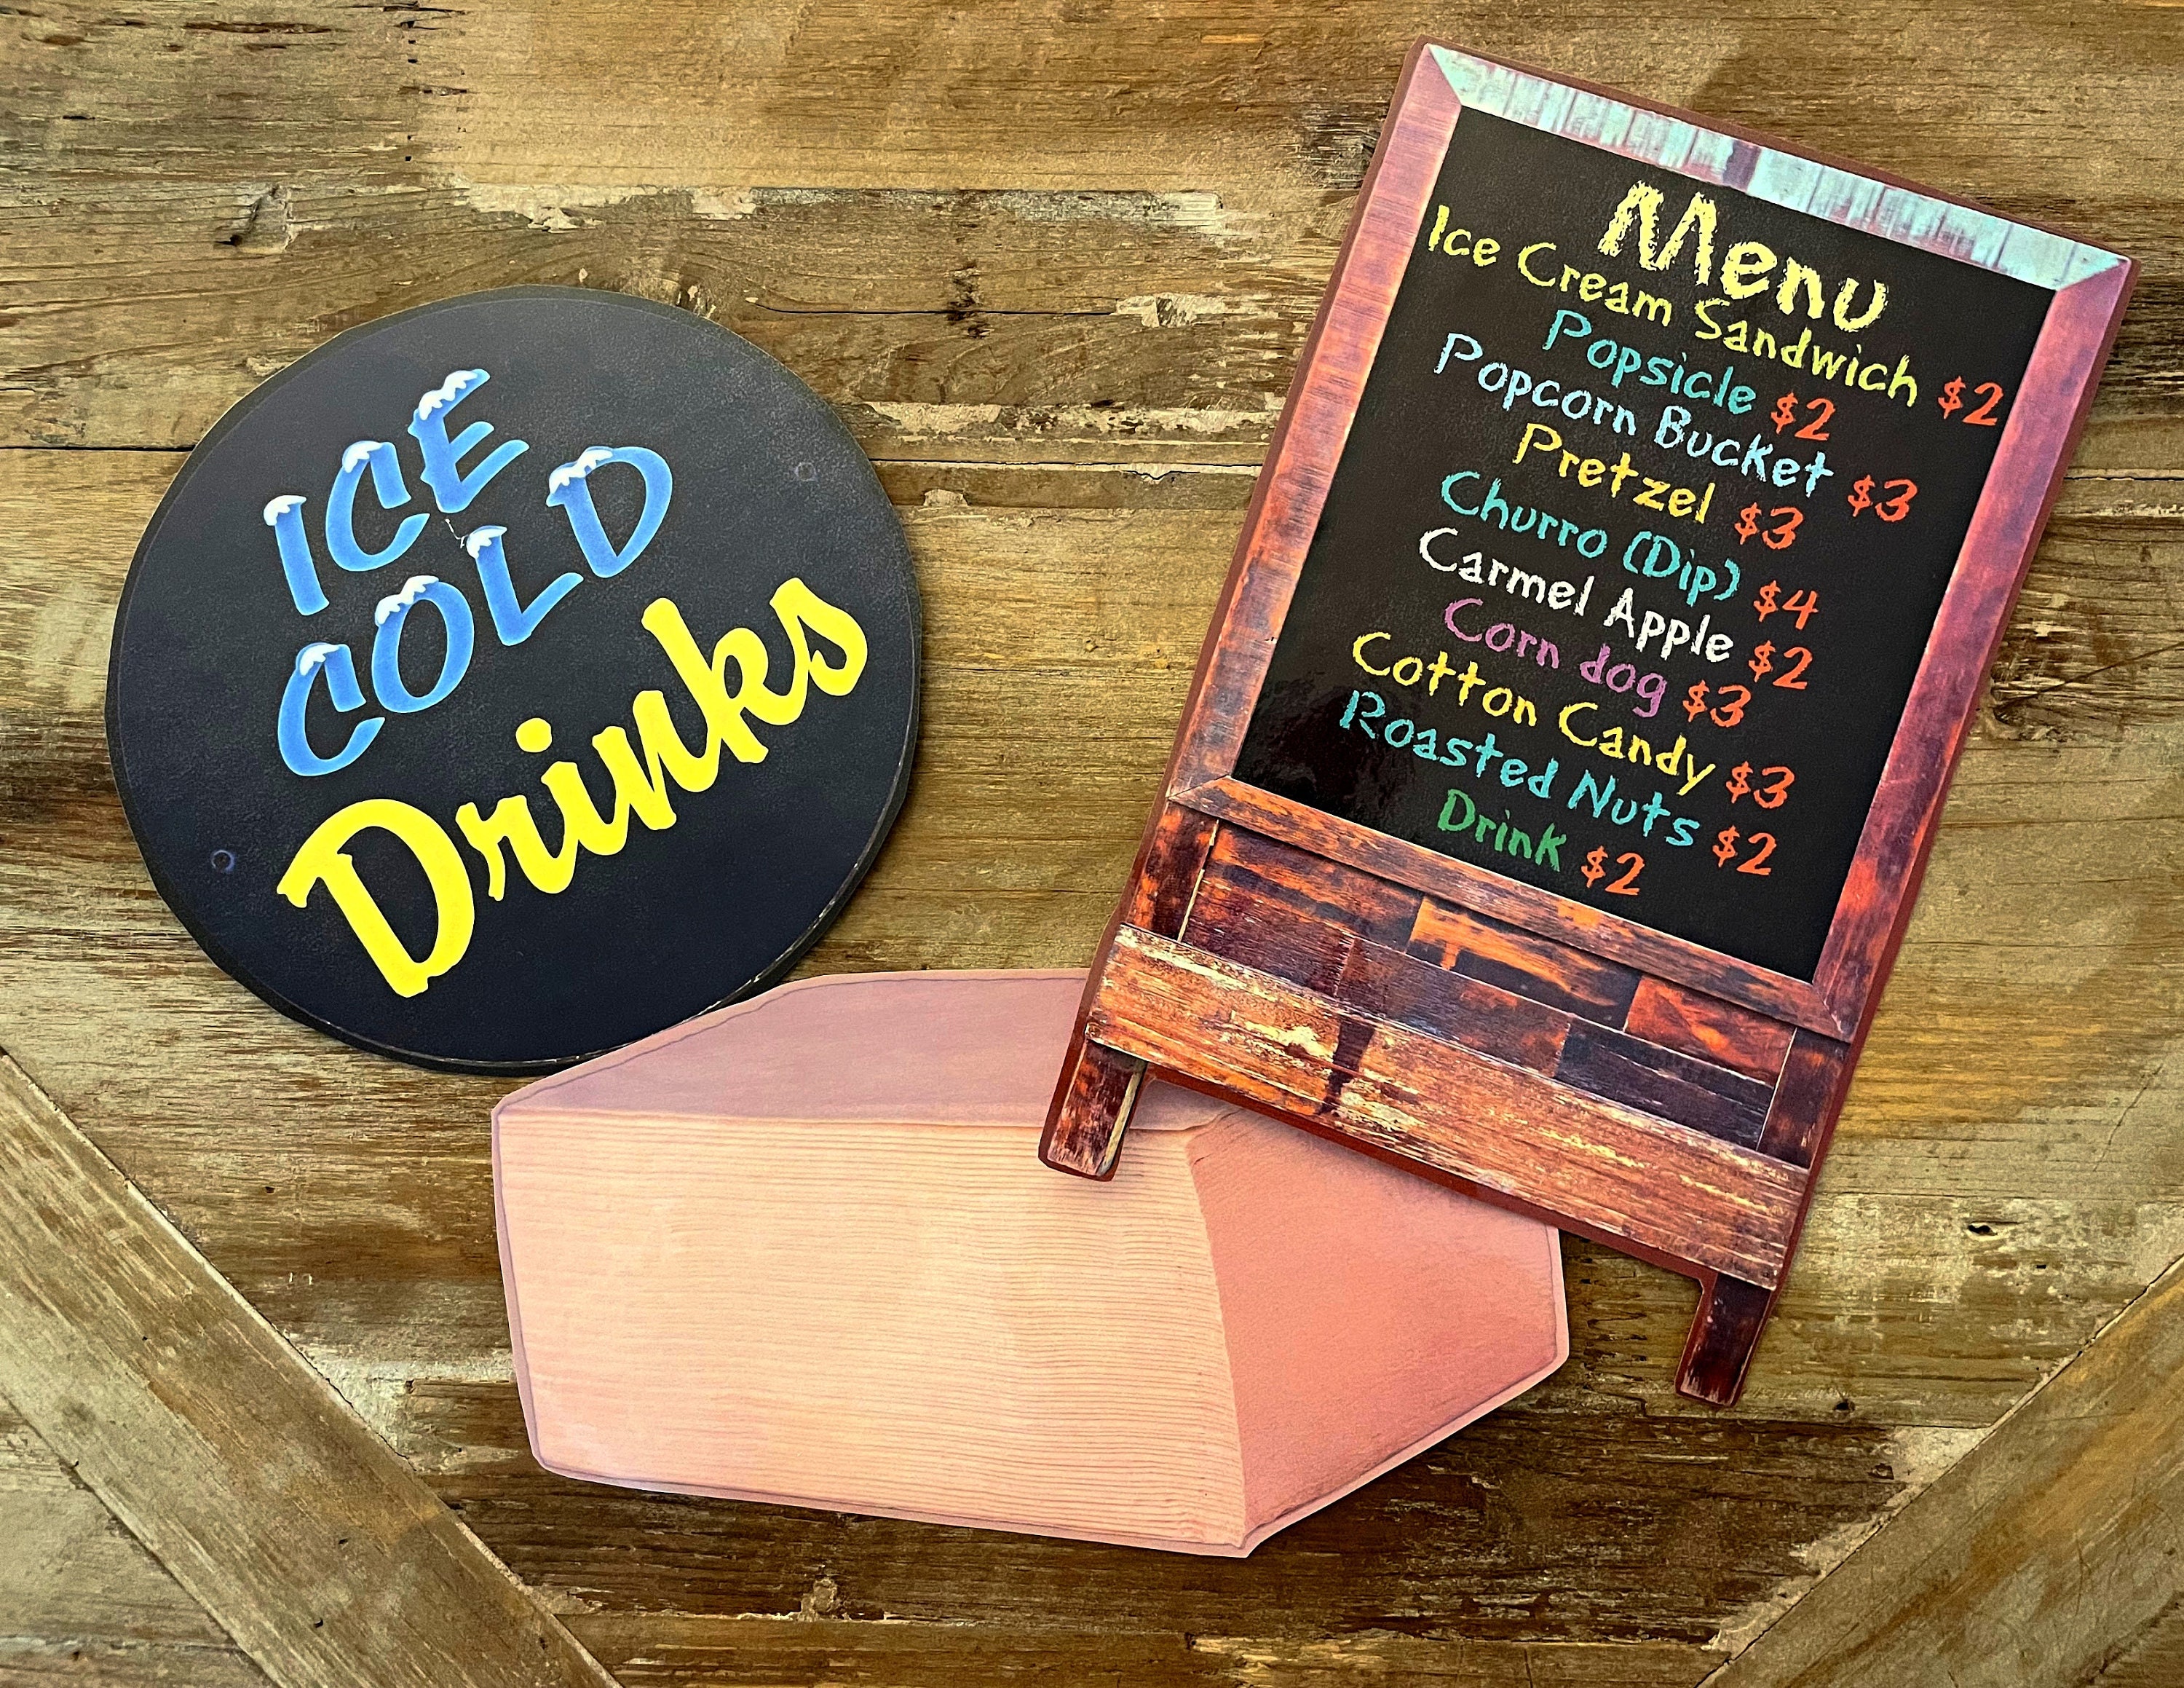 ICE
COLD
Drinks
Menu
Ice Cream Sandwich $2
Popsicle $2
Popcorn Bucket $3
Pretzel $3
Churro (Dip) $4
Carmel Apple $2
Corn dog $3
Cotton Candy $3
Roasted Nuts $2
Drink $2